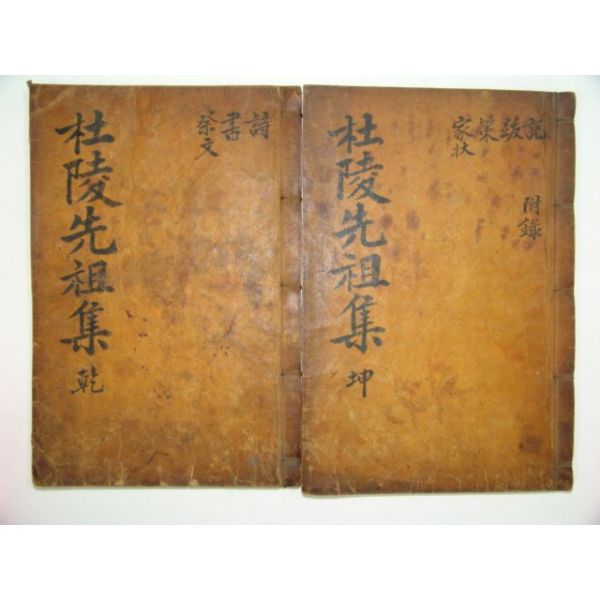 杜陵先祖集 乾
詩 書 祭文
杜陵先祖集 坤
記 跋 策 家状
附錄